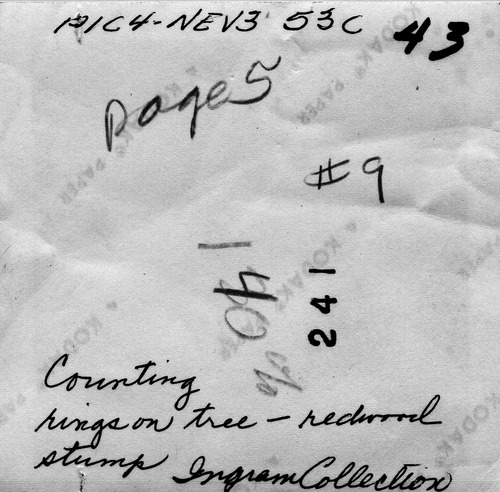 PIC4-NEV3 53C 43
page 5
#9
241
Counting
rings on tree – redwood
stump Ingram Collection